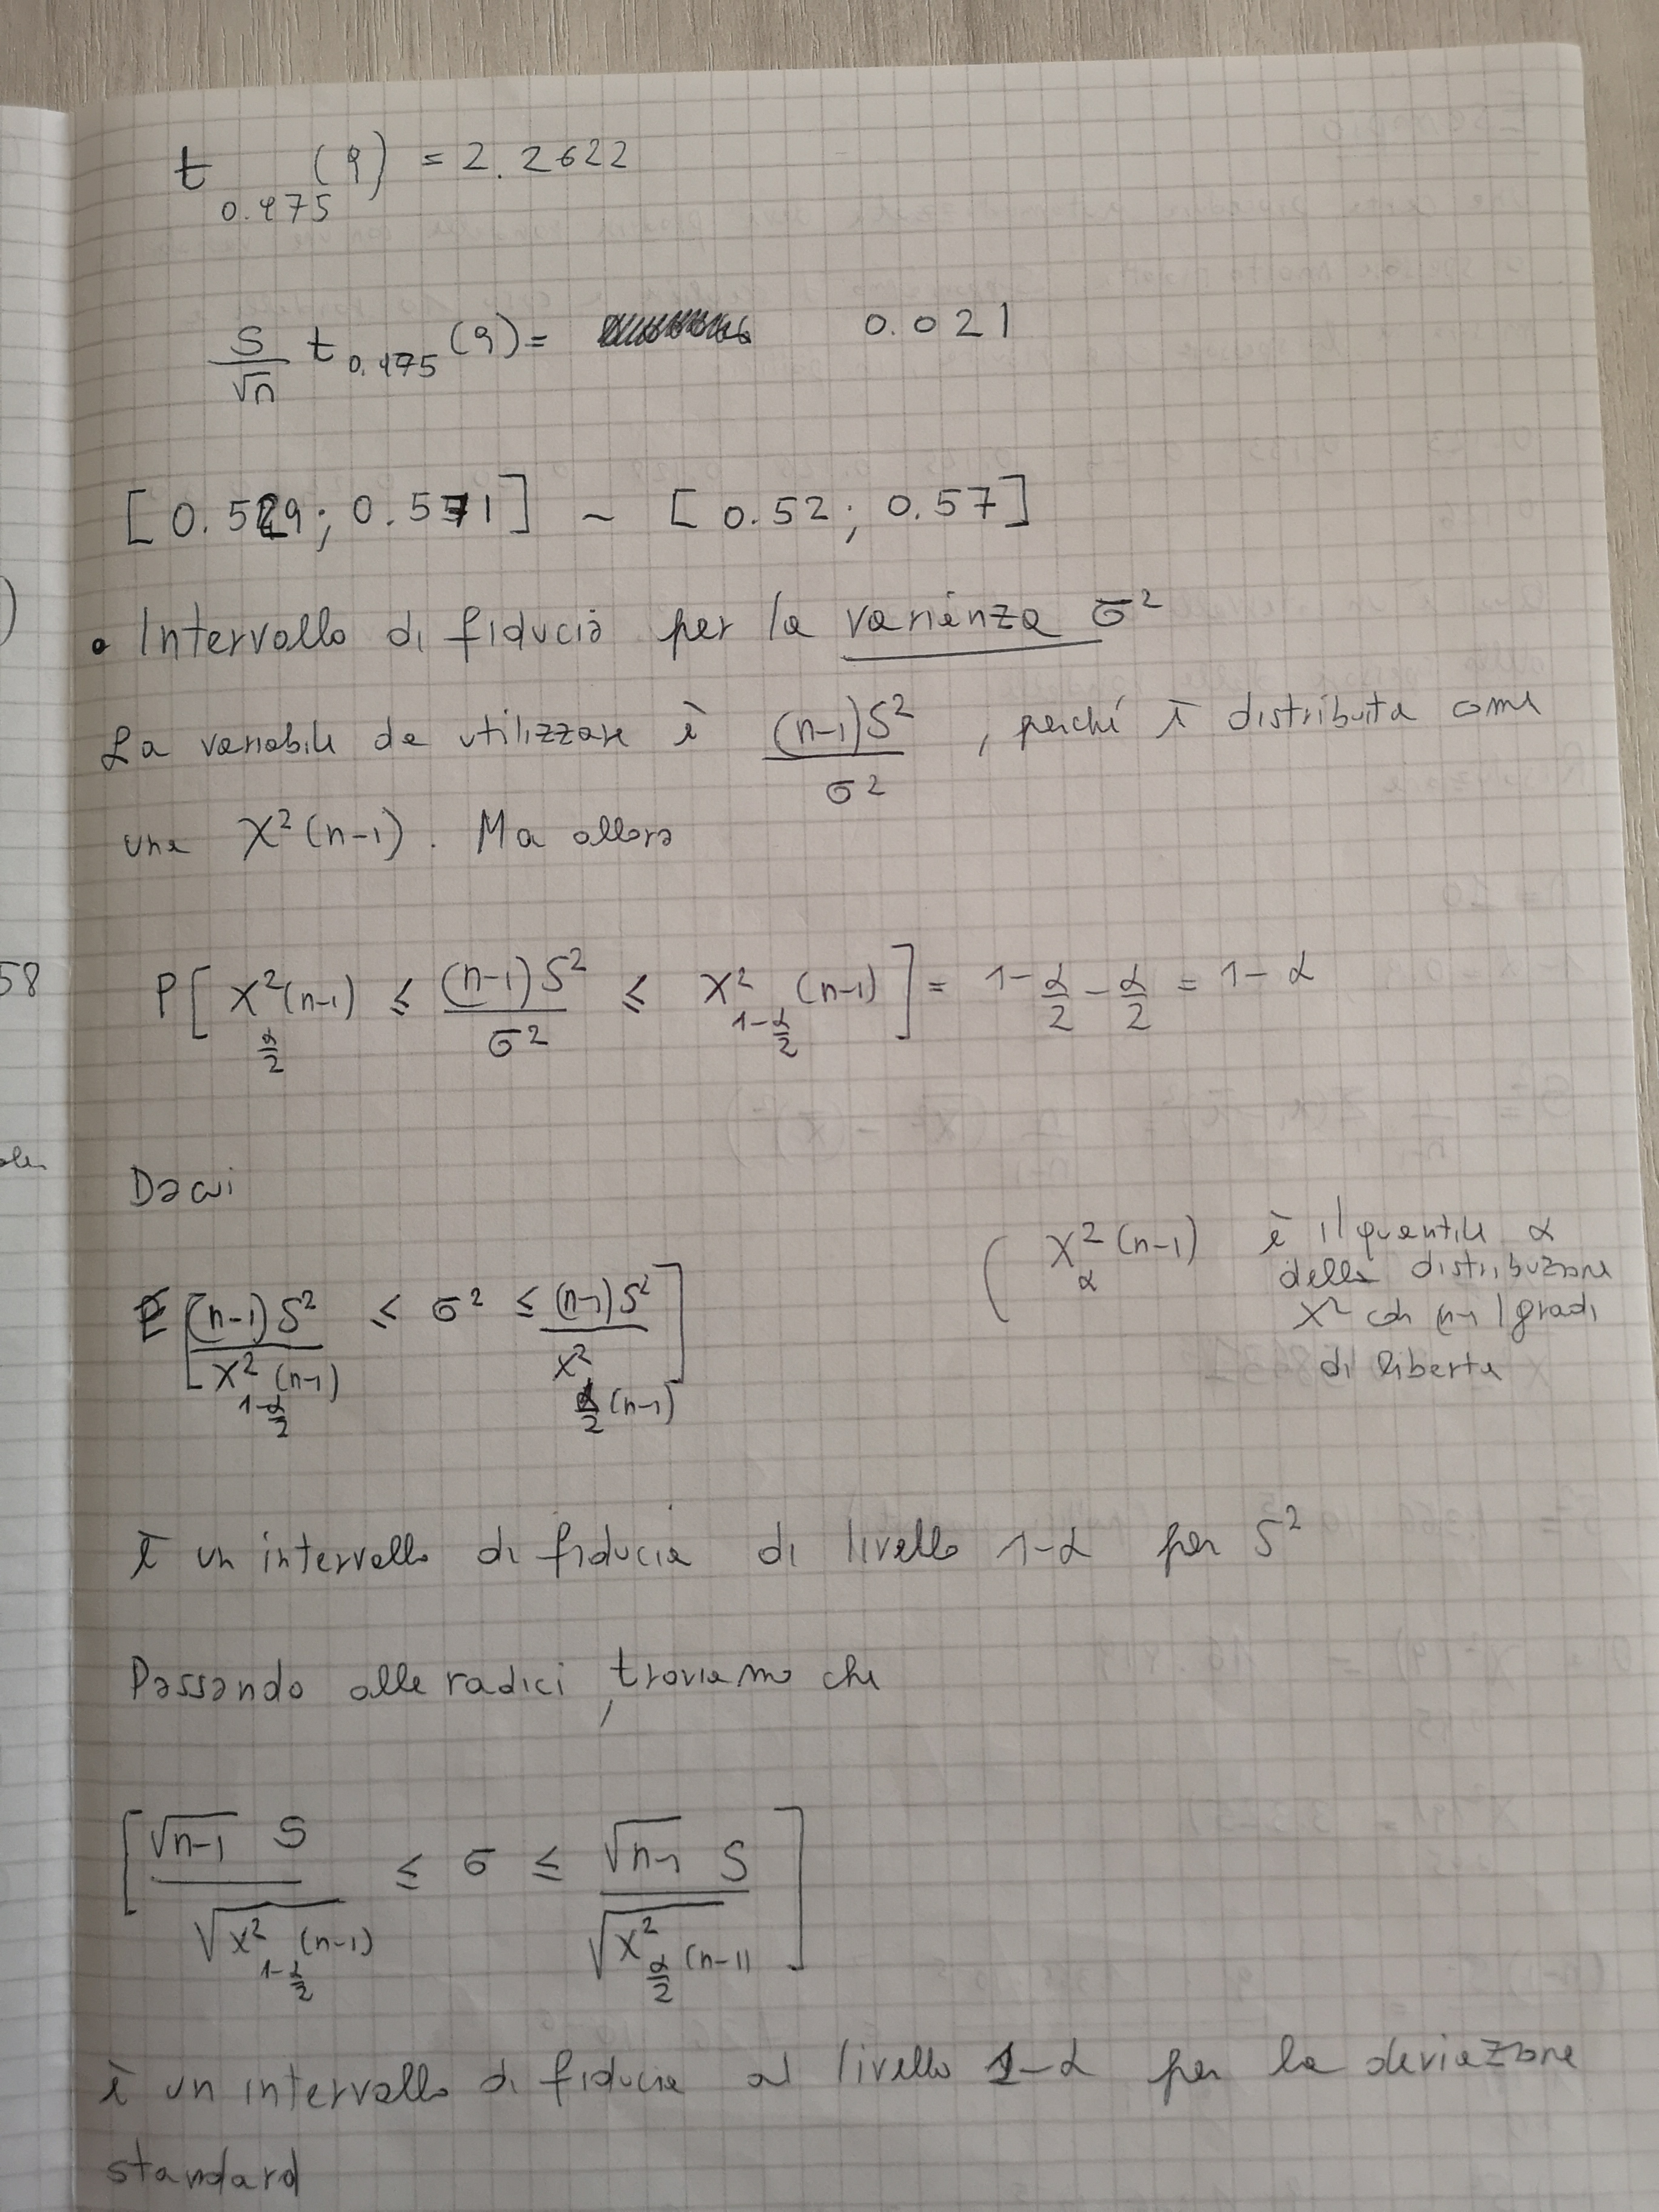 t_{0.975} (9) = 2.2622
\frac{S}{\sqrt{n}} t_{0.975} (9) = 0.021
[0.529; 0.571] ~ [0.52; 0.57]
• Intervallo di fiducia per la varianza σ²
La variabile da utilizzare è \frac{(n-1)S²}{σ²}, perché è distribuita come
una χ²(n-1). Ma allora
P[χ²_{\frac{α}{2}}(n-1) ≤ \frac{(n-1)S²}{σ²} ≤ χ²_{1-\frac{α}{2}}(n-1)] = 1-\frac{α}{2}-\frac{α}{2} = 1-α
Da cui
[\frac{(n-1)S²}{χ²_{1-\frac{α}{2}}(n-1)} ≤ σ² ≤ \frac{(n-1)S²}{χ²_{\frac{α}{2}}(n-1)}]
( χ²_α(n-1) è il quantile α
della distribuzione
χ² con (n-1) gradi
di liberta
è un intervallo di fiducia di livello 1-α per S²
Passando alle radici, troviamo che
[\frac{\sqrt{n-1} S}{\sqrt{χ²_{1-\frac{α}{2}}(n-1)}} ≤ σ ≤ \frac{\sqrt{n-1} S}{\sqrt{χ²_{\frac{α}{2}}(n-1)}}]
è un intervallo di fiducia al livello 1-α per la deviazione
standard
58